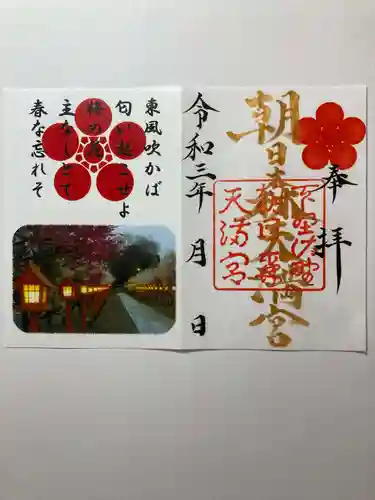 奉拝
朝日森天満宮
下野佐野
朝日森
天満宮
令和三年 月 日
東風吹かば
匂い起こせよ
梅の花
主なしとて
春な忘れそ